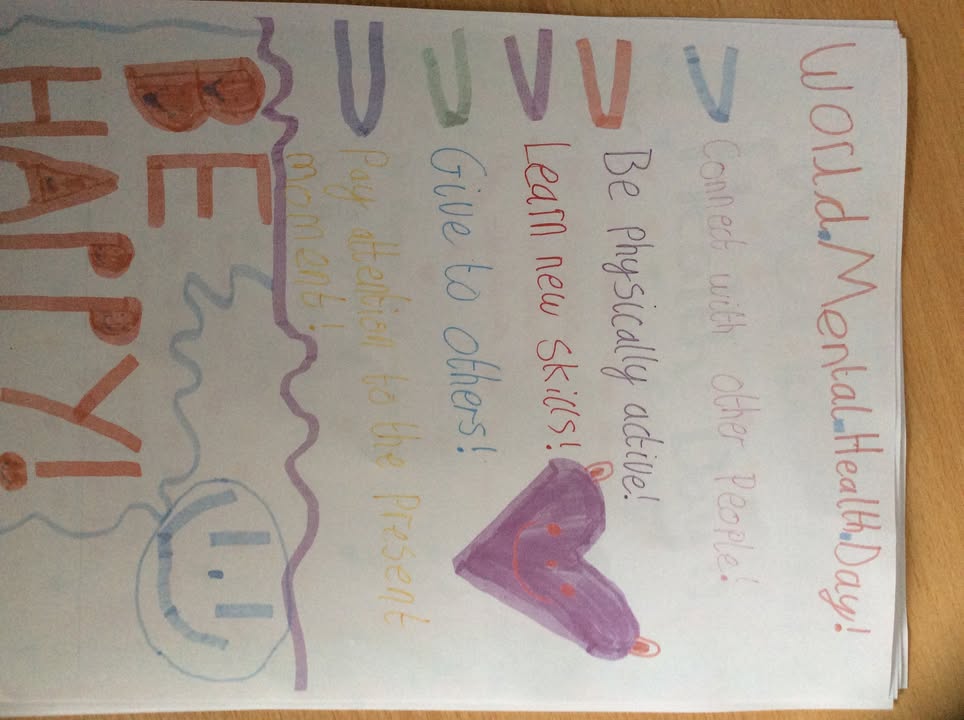 World.Mental.Health.Day!
Connect with other People!
Be physically active!
Learn new skills!
Give to others!
Pay attention to the present
moment!
BE
HAPPY!